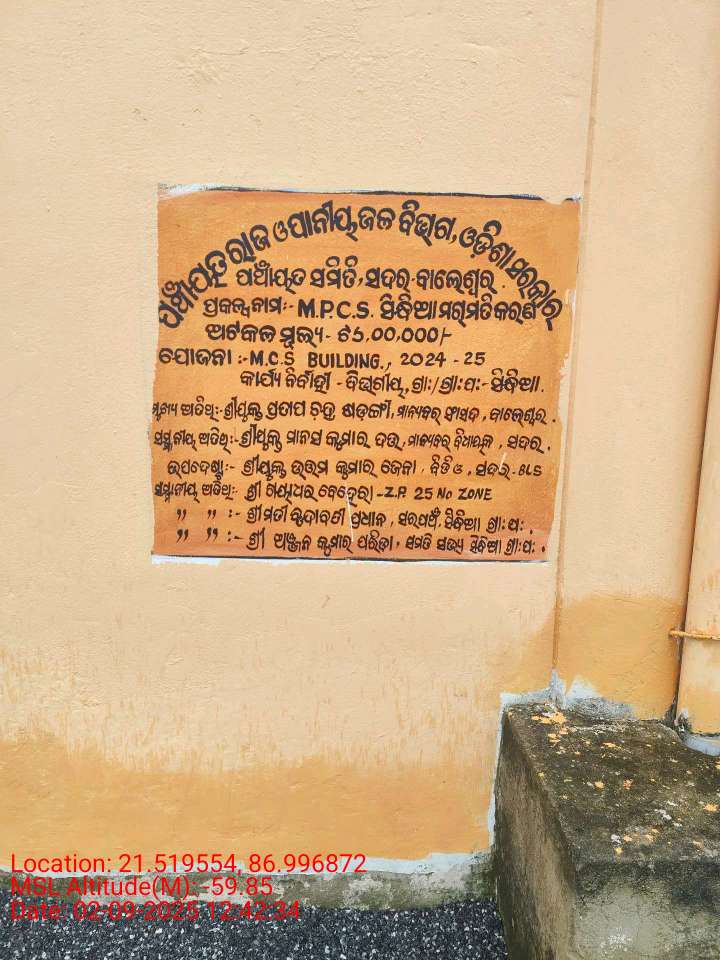 ପଞ୍ଚାୟତରାଜ ଓ ପାନୀୟ ଜଳ ବିଭାଗ, ଓଡ଼ିଶା ସରକାର
ପଞ୍ଚାୟତ ସମିତି, ସଦର-ବାଲେଶ୍ୱର.
ପ୍ରକଳ୍ପ ନାମ:- M.P.C.S. ସିନ୍ଧିଆ ମରାମତିକରଣ
ଅଟକଳ ମୂଲ୍ୟ- ₹ 5,00,000/-
ଯୋଜନା :- M.C.S BUILDING., 2024-25
କାର୍ଯ୍ୟ ନିର୍ବାହୀ - ବିଭାଗୀୟ, ଗ୍ରା:/ଗ୍ରା:ପ:- ସିନ୍ଧିଆ.
ମୁଖ୍ୟ ଅତିଥି:- ଶ୍ରୀଯୁକ୍ତ ପ୍ରତାପ ଚନ୍ଦ୍ର ଷଡ଼ଙ୍ଗୀ, ମାନ୍ୟବର ସାଂସଦ, ବାଲେଶ୍ୱର.
ସମ୍ମାନୀୟ ଅତିଥି:- ଶ୍ରୀଯୁକ୍ତ ମାନସ କୁମାର ଦତ୍ତ, ମାନ୍ୟବର ବିଧାୟକ, ସଦର.
ଉପଦେଷ୍ଟା:- ଶ୍ରୀଯୁକ୍ତ ଉତ୍ତମ କୁମାର ଜେନା, ବିଡିଓ, ସଦର-BLS
ସମ୍ମାନୀୟ ଅତିଥି:- ଶ୍ରୀ ଗଙ୍ଗାଧର ବେହେରା - Z.P. 25 No ZONE
" " :- ଶ୍ରୀମତୀ ବୃନ୍ଦାବତୀ ପ୍ରଧାନ, ସରପଞ୍ଚ, ସିନ୍ଧିଆ ଗ୍ରା:ପ:.
" " :- ଶ୍ରୀ ଅଞ୍ଜନ କୁମାର ପରିଡ଼ା, ସମିତି ସଭ୍ୟ ସିନ୍ଧିଆ ଗ୍ରା:ପ:.
Location: 21.519554, 86.996872
MSL Altitude(M): -59.85
Date: 02-09-2025 12:42:34